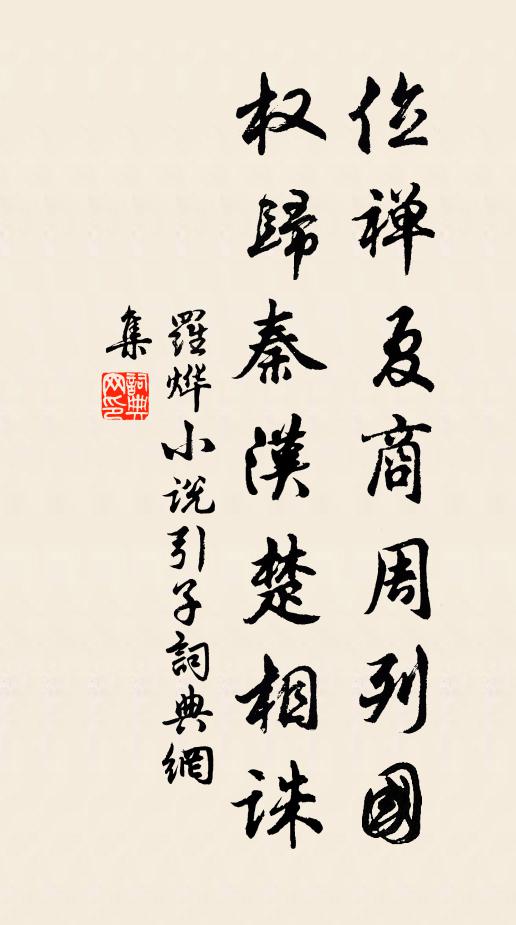 位禅夏商周列國
权歸秦漢楚相诛
羅烨小说引子詞典網
集
詞典
网印